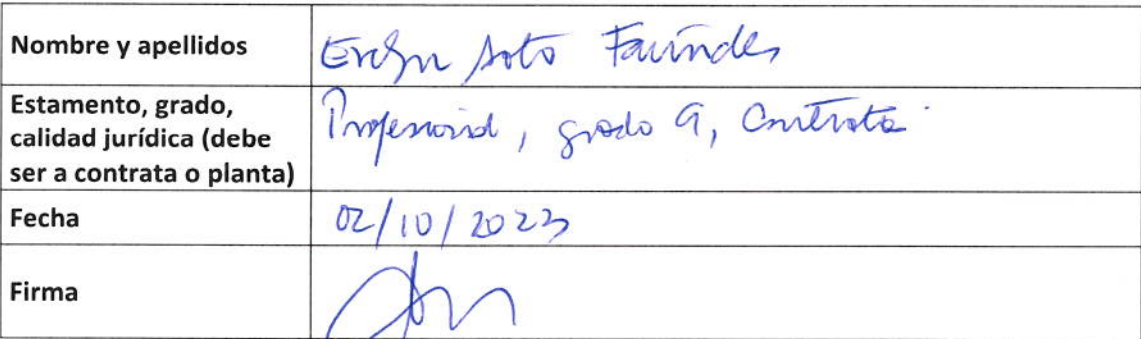 Nombre y apellidos
Evelyn Soto Faúndes
Estamento, grado,
calidad jurídica (debe
ser a contrata o planta)
Profesional, grado 9, Contrata
Fecha
02/10/2023
Firma